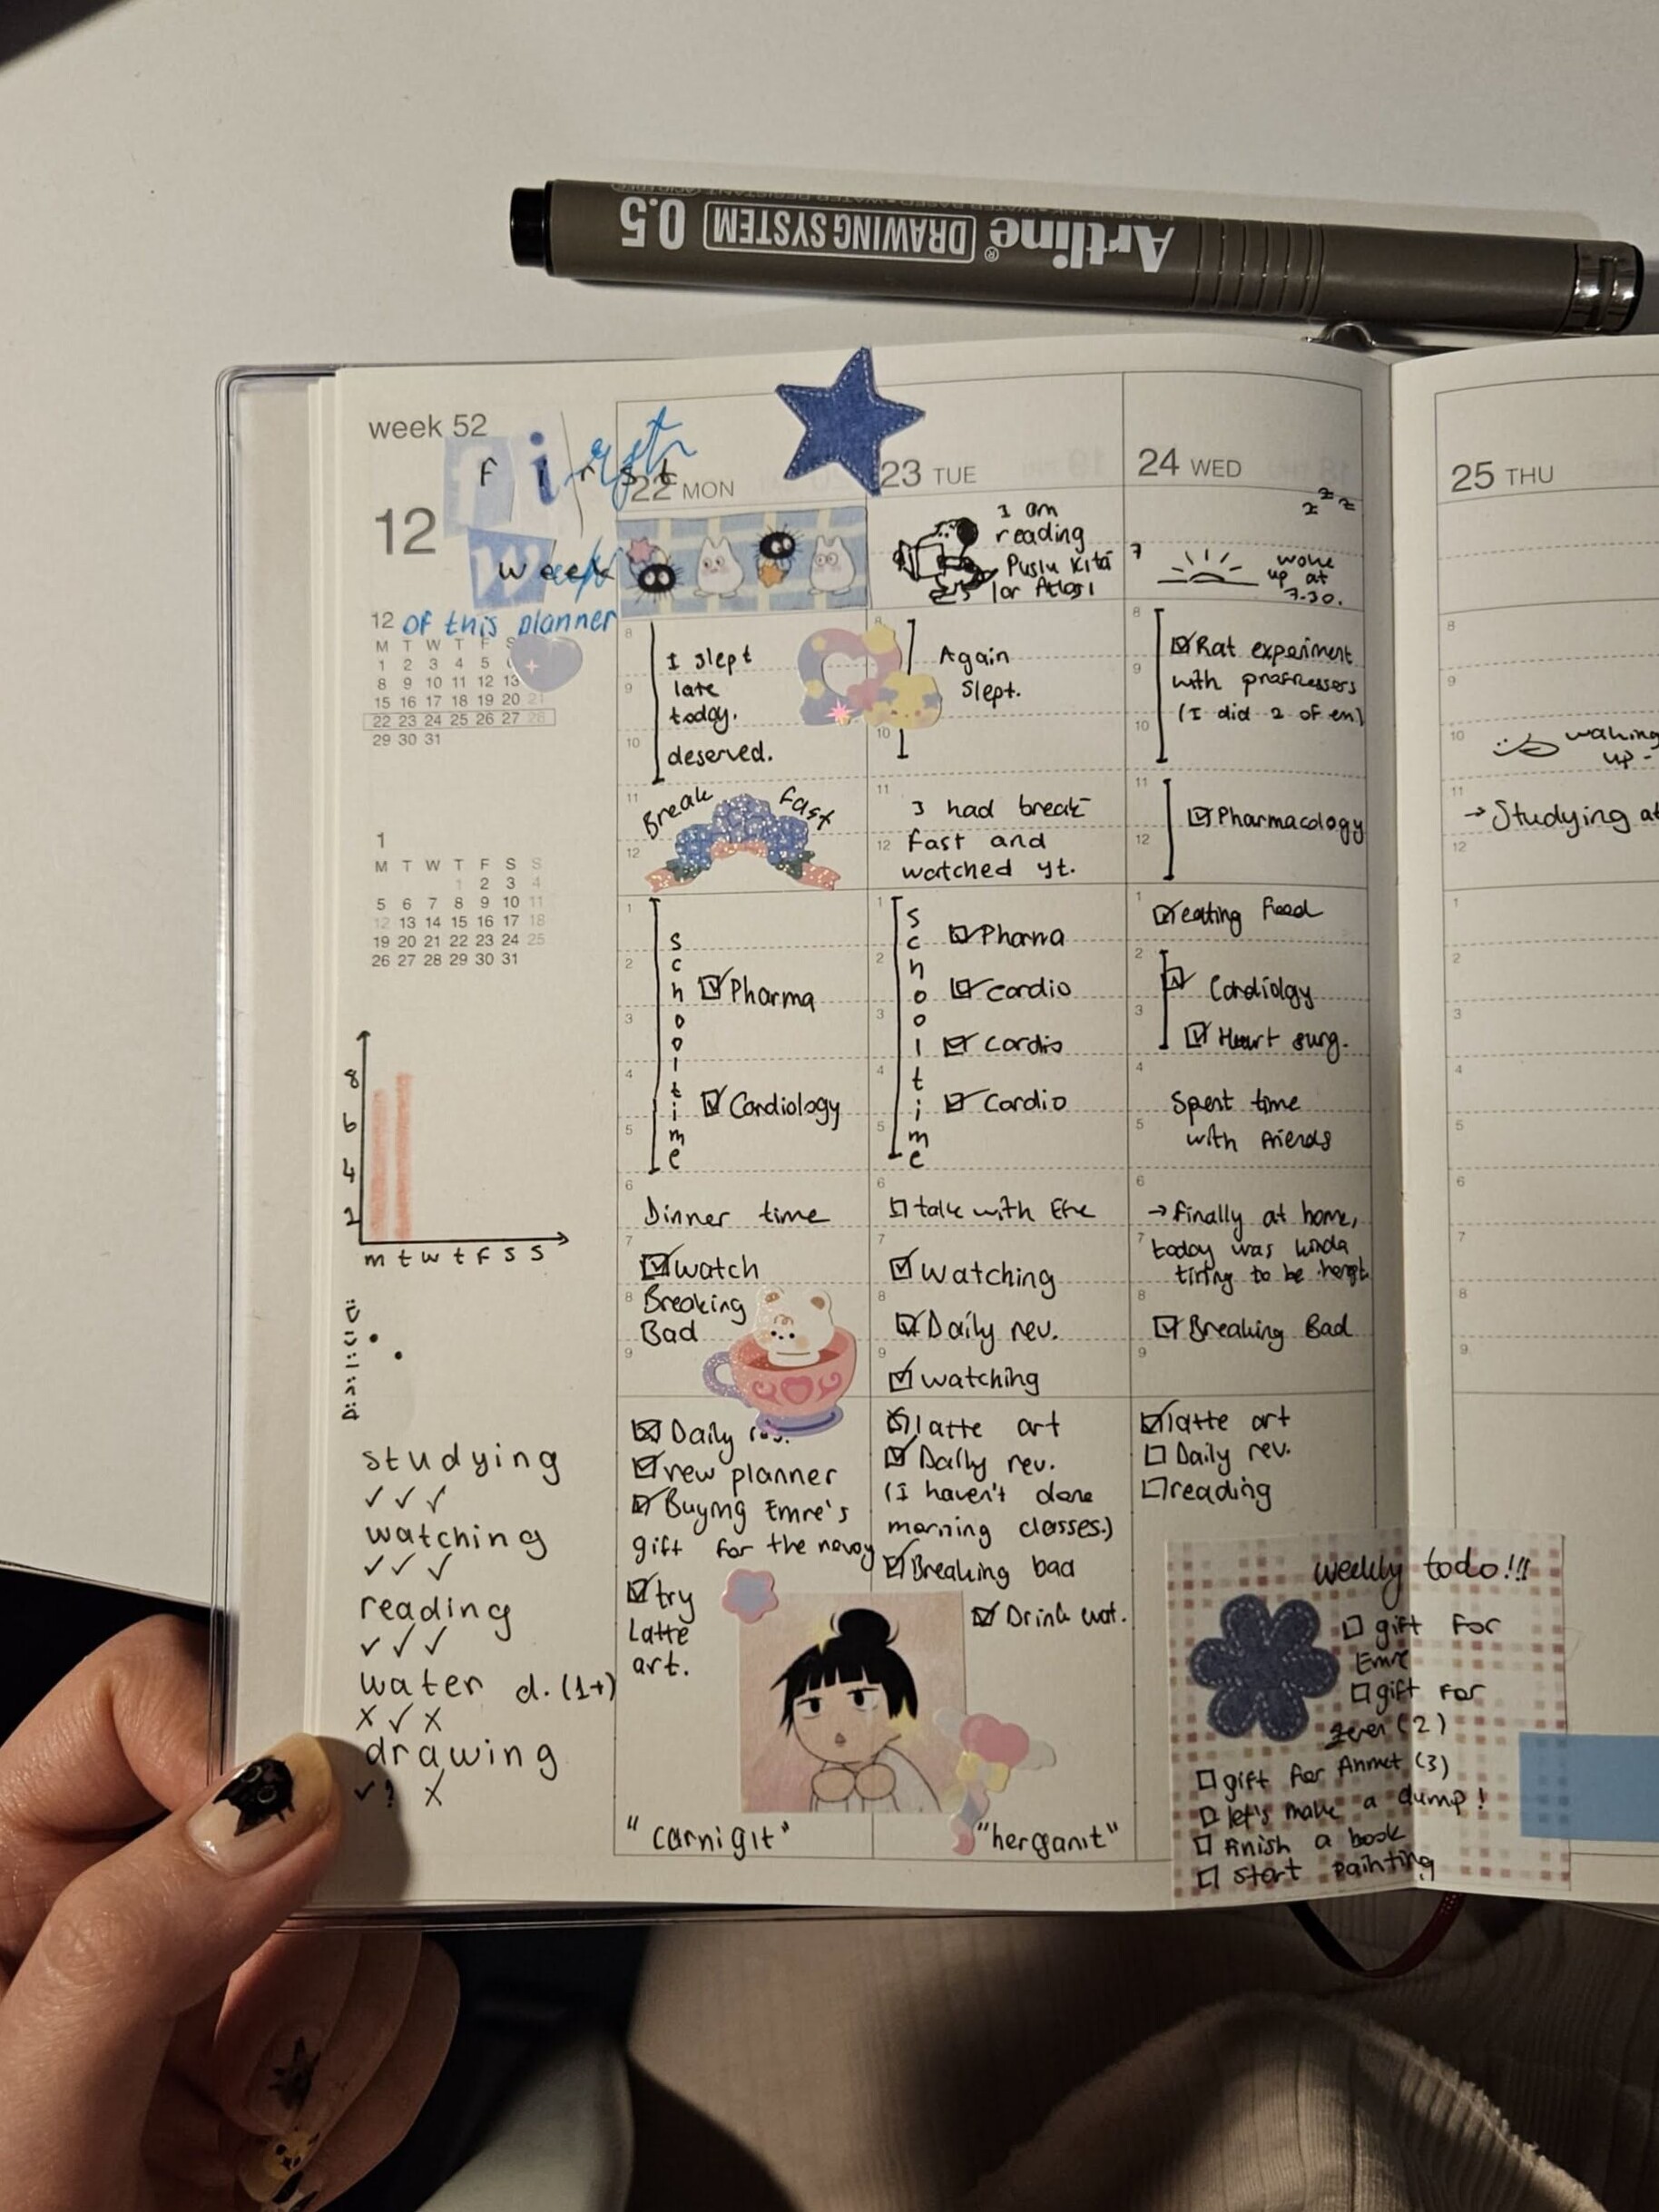 Artline® DRAWING SYSTEM 0.5
week 52
first
first
12
week
week
12 of this planner
M T W T F S
1 2 3 4 5 6
8 9 10 11 12 13
15 16 17 18 19 20 21
22 23 24 25 26 27 28
29 30 31
1
M T W T F S S
1 2 3 4
5 6 7 8 9 10 11
12 13 14 15 16 17 18
19 20 21 22 23 24 25
26 27 28 29 30 31
8
6
4
2
m t w t f s s
studying
✓ ✓ ✓
watching
✓ ✓ ✓
reading
✓ ✓ ✓
water d. (1+)
X ✓ X
drawing
✓ ? X
22 MON
8
I slept
9
late
today.
10
deserved.
11
Break fast
12
1
School time
2
Pharma
3
4
Cardiology
5
6
Dinner time
7
watch
8
Breaking
Bad
9
Daily rev.
new planner
Buying Emre's
gift for the
try
Latte
art.
"Carnigit"
23 TUE
I am
reading
Puslu Kıta
lar Atlası
8
Again
slept.
10
11
I had break
12
fast and
watched yt.
1
School time
Pharma
2
Cardio
3
Cardio
4
Cardio
5
6
talk with Efe
7
Watching
8
Daily rev.
9
watching
latte art
Daily rev.
(I haven't done
morning classes.)
Breaking bad
Drink wat.
"herganit"
24 WED
z z z
7
woke
up at
7.30.
8
Rat experiment
9
with proffessors
(I did 2 of em)
10
11
Pharmacology
12
1
eating food
2
Cardiolgy
3
Heart surg.
4
Spent time
5
with friends
6
→ finally at home,
7
today was kinda
tiring to be
8
Breaking Bad
9
latte art
Daily rev.
reading
weekly todo!!!
gift for
Emre
gift for
(2)
gift for Ahmet (3)
let's make a dump!
finish a book
start painting
25 THU
8
9
10
waking
up -
11
→ Studying at
12
1
2
3
4
5
6
7
8
9